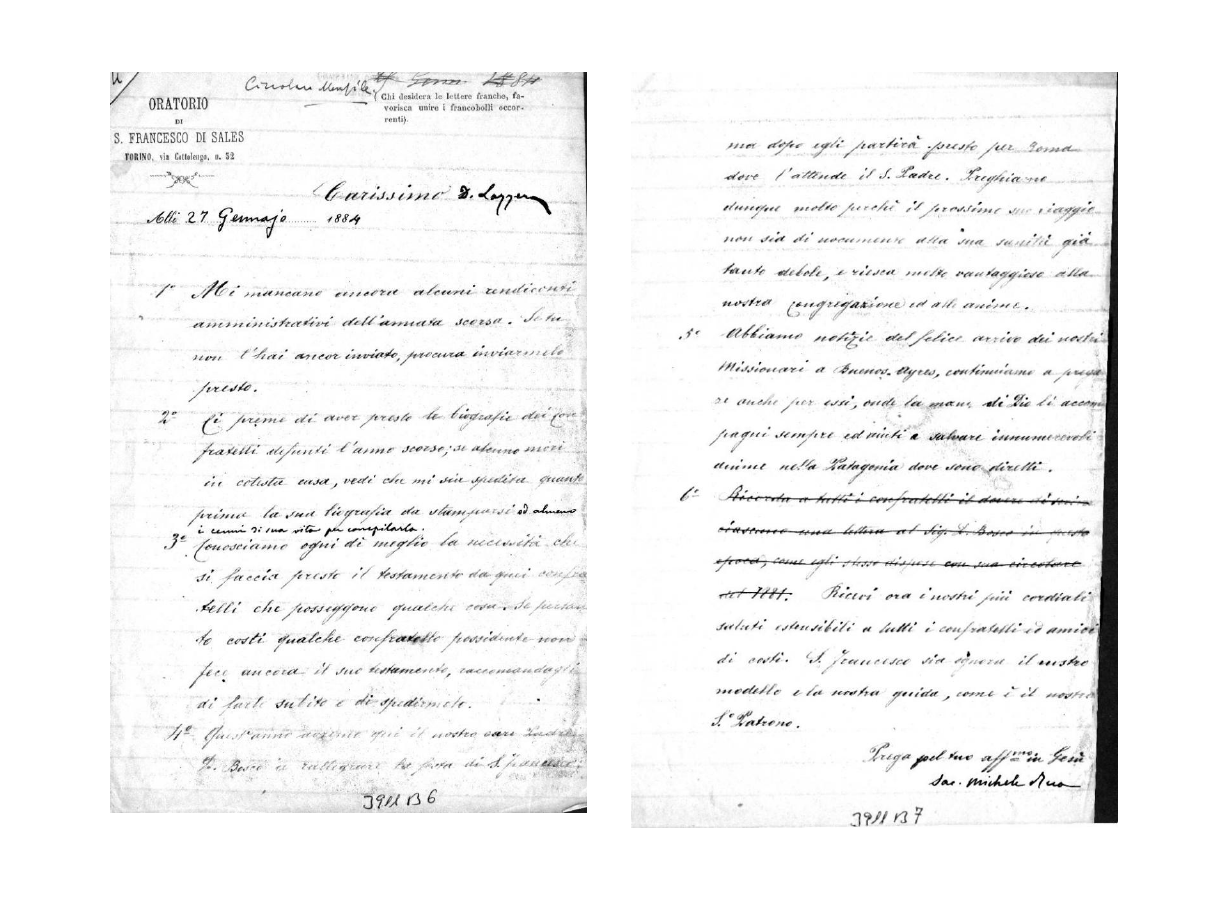 Circolare Mensile
(Chi desidera le lettere franche, fa-
vorisca unire i francobolli occor-
renti).
ORATORIO
DI
S. FRANCESCO DI SALES
TORINO, via Cottolengo, n. 32
Carissimo D. Lazzero
Alli 27 Gennajo 1884
1° Mi mancano ancora alcuni rendiconti
amministrativi dell'annata scorsa. Se tu
non l'hai ancor inviato, procura inviarmelo
presto.
2° Ci preme di aver presto le biografie dei con
fratelli defunti l'anno scorso; se alcuno morì
in cotesta casa, vedi che mi sia spedita quanto
prima la sua biografia da stamparsi od almeno
i cenni di sua vita per compilarla.
3° Conosciamo ogni dì meglio la necessità che
si faccia presto il testamento da quei confra
telli che posseggono qualche cosa. Se pertan
to costì qualche confratello possidente non
fece ancora il suo testamento, raccomandagli
di farlo subito e di spedirmelo.
4° Quest'anno avremo qui il nostro caro Padre
D. Bosco a rallegrare la festa di S. Francesco:
J911 B6
ma dopo egli partirà presto per Roma
dove l'attende il S. Padre. Preghiamo
dunque molto perchè il prossimo suo viaggio
non sia di nocumento alla sua sanità già
tanto debole, e riesca molto vantaggioso alla
nostra Congregazione ed alle anime.
5° Abbiamo notizie del felice arrivo dei nostri
Missionari a Buenos-Ayres, continuiamo a prega
re anche per essi, onde la mano di Dio li accom
pagni sempre ed aiuti a salvare innumerevoli
anime nella Patagonia dove sono diretti.
6° Ricorda a tutti i confratelli il dovere di scri
ciascuno una lettera al Sig. D. Bosco in questa
epoca, come egli stesso dispose con sua circolare
del 1881. Ricevi ora i nostri più cordiali
saluti estensibili a tutti i confratelli ed amici
di costì. S. Francesco sia ognora il nostro
modello e la nostra guida, come è il nostro
S.° Patrono.
Prega pel tuo aff.mo in Gesù
Sac. Michele Rua
J911 B7